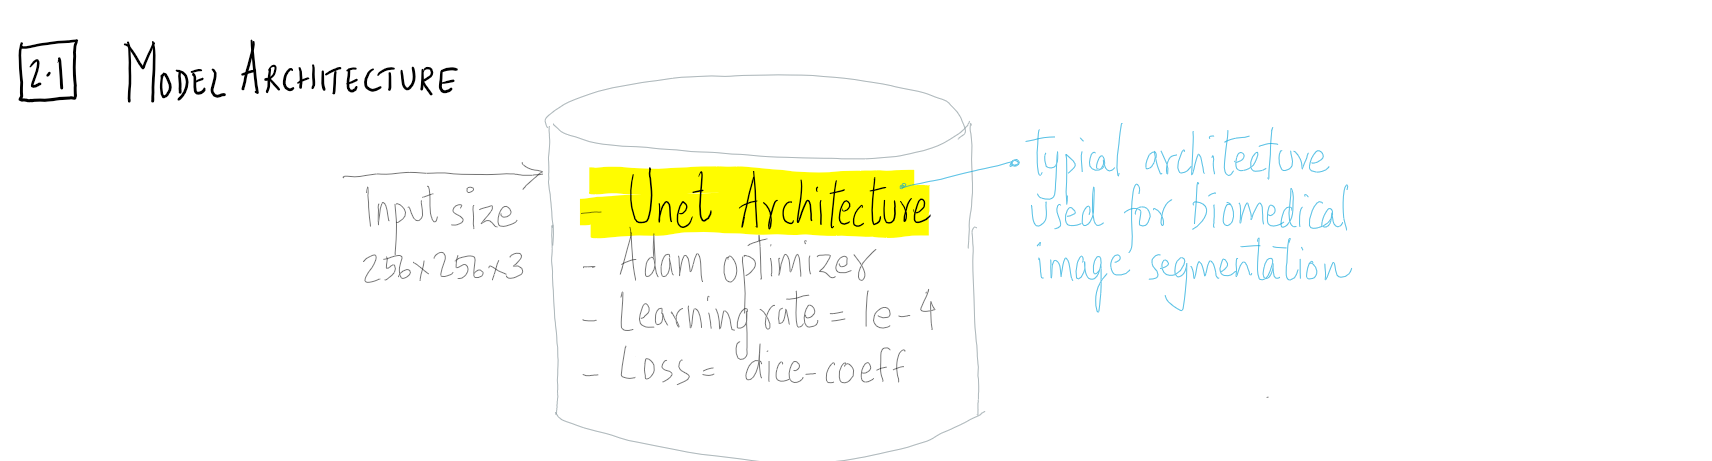 2.1 MODEL ARCHITECTURE
Input size
256x256x3
- Unet Architecture
- Adam optimizer
- Learning rate = 1e-4
- Loss = dice-coeff
typical architecture
used for biomedical
image segmentation